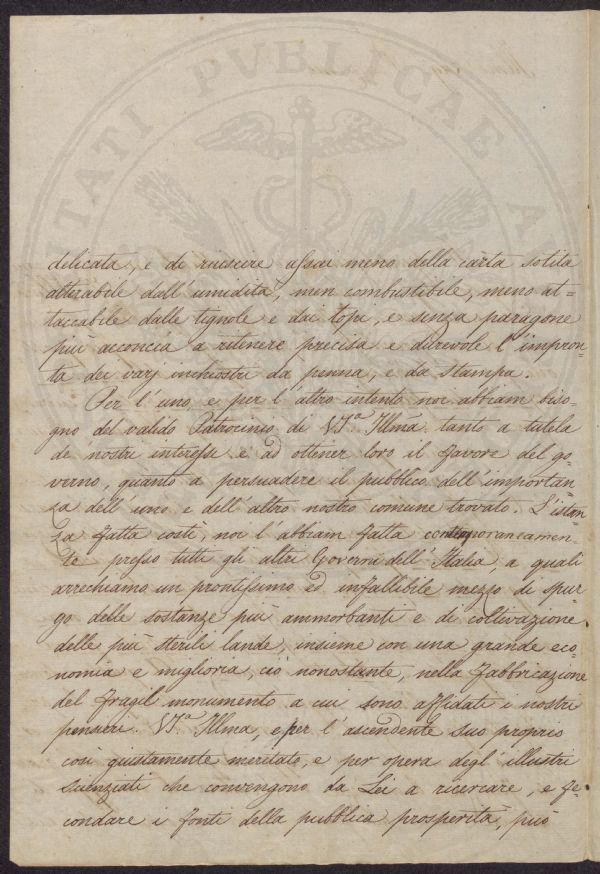 TATI PVBLICAE A
delicata, e di riuscire assai meno della carta solita
attirabile dall'umidità, men combustibile, meno at=
taccabile dalle tignole e dai topi, e senza paragone
più acconcia a ritinere precisa e durevole l'impron=
ta dei varj inchiostri da penna, e da stampa.
Per l'uno, e per l'altro intento noi abbiam biso=
gno del valido Patrocinio di V.S.ª Illma tanto a tutela
de nostri interessi e ad ottener loro il favore del go=
verno, quanto a persuadere il pubblico dell'importan=
za dell'uno e dell'altro nostro comune trovato. L'istan=
za fatta costì, noi l'abbiam fatta contemporaneamen=
te presso tutti gli altri Governi dell'Italia a quali
arrechiamo un prontissimo ed infallibile mezzo di spur=
go delle sostanze più ammorbanti e di coltivazione
delle più sterili lande, insieme con una grande eco=
nomia e miglioria, ciò nonostante, nella fabbricazione
del fragil monumento a cui sono affidati i nostri
pensieri. V.S.ª Illma, e per l'ascendente suo proprio
così giustamente meritato, e per opera degl'illustri
scienziati che convengono da Lei a ricercare, e fe=
condare i fonti della pubblica prosperità, può